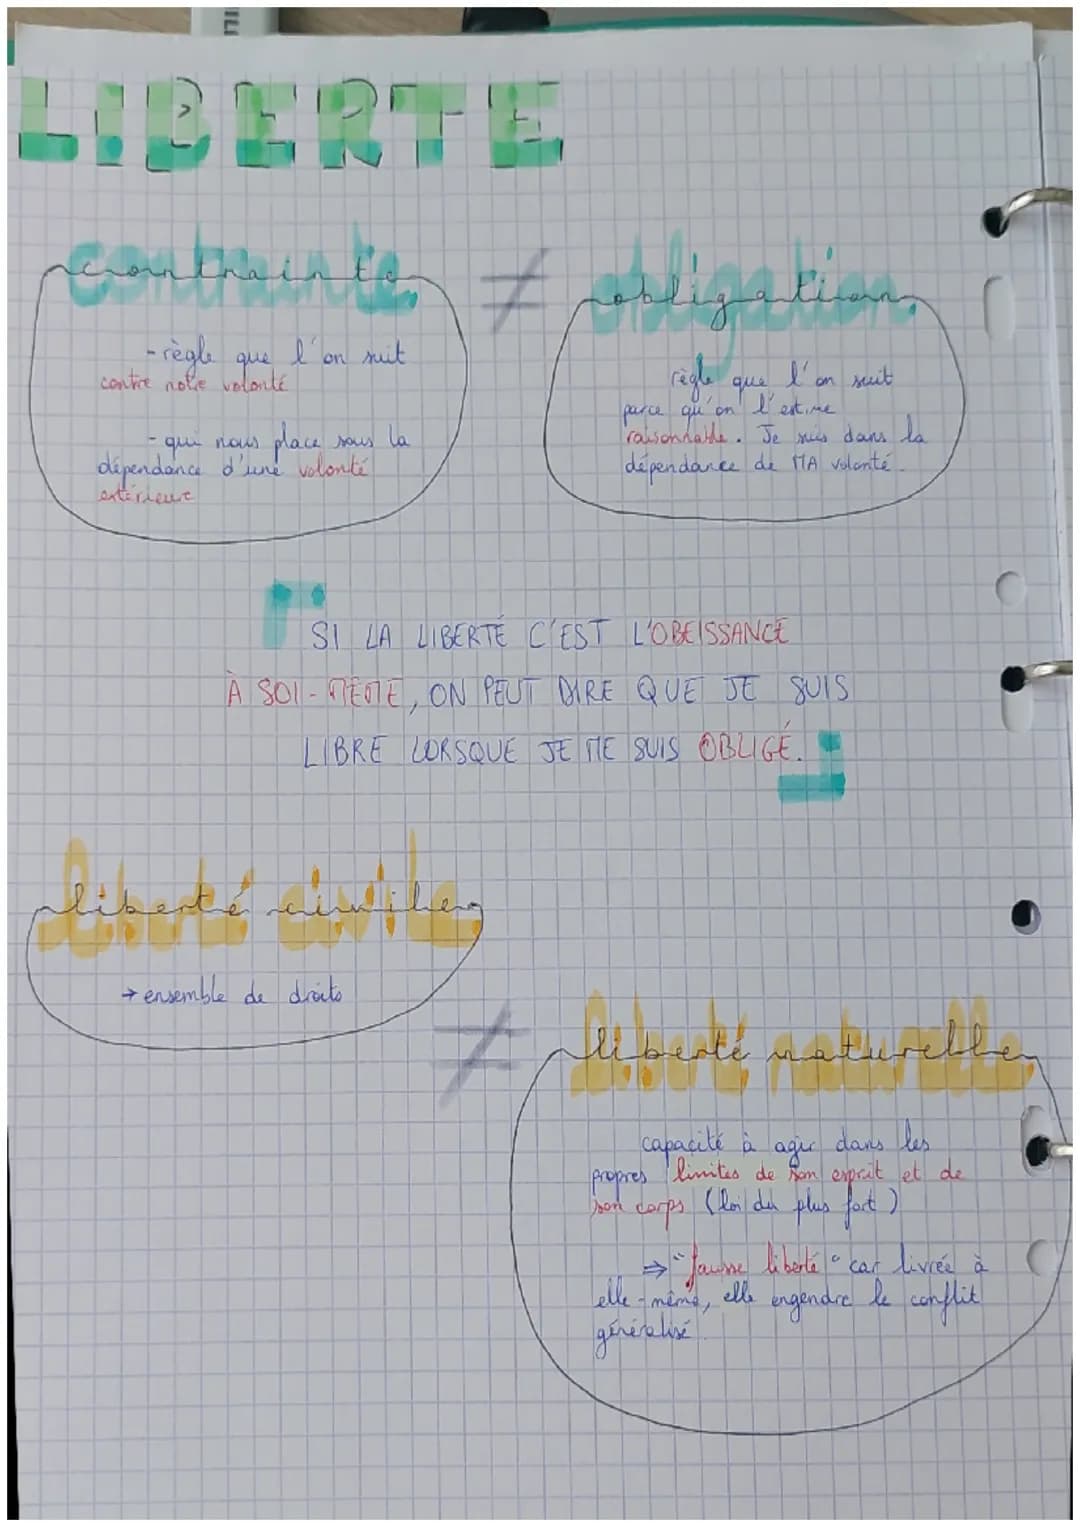 LIBERTE
contrainte
≠
obligation
- règle que l'on suit
contre notre volonté
- qui nous place sous la
dépendance d'une volonté
extérieure
règle que l'on suit
parce qu'on l'estime
raisonnable. Je suis dans la
dépendance de MA volonté.
SI LA LIBERTÉ C'EST L'OBEISSANCE
À SOI-MÊME, ON PEUT DIRE QUE JE SUIS
LIBRE LORSQUE JE ME SUIS OBLIGÉ.
liberté civile
→ ensemble de droits
≠
liberté naturelle
capacité à agir dans les
propres limites de son esprit et de
son corps (loi du plus fort)
⇒ "fausse liberté" car livrée à
elle-même, elle engendre le conflit
généralisé